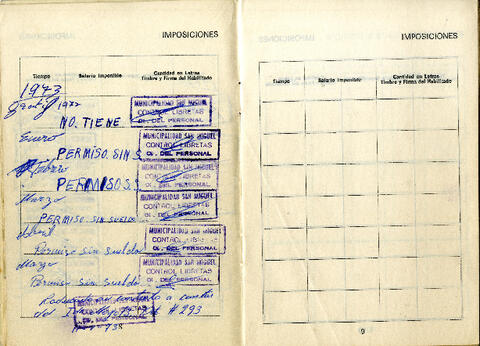 IMPOSICIONES
Tiempo Salario Imponible Cantidad en Letras
Timbre y Firma del Habilitado
1973
1972
NO. TIENE
MUNICIPALIDAD SAN MIGUEL
CONTROL LIBRETAS
OF. DEL PERSONAL
Enero
PERMISO. SIN S.
MUNICIPALIDAD SAN MIGUEL
CONTROL LIBRETAS
OF. DEL PERSONAL
Febrero
PERMISO S. S.
MUNICIPALIDAD SAN MIGUEL
CONTROL LIBRETAS
OF. DEL PERSONAL
Marzo
PERMISO. SIN SUELDO
MUNICIPALIDAD SAN MIGUEL
CONTROL LIBRETAS
OF. DEL PERSONAL
Abril
Permiso Sin Sueldo
MUNICIPALIDAD SAN MIGUEL
CONTROL LIBRETAS
OF. DEL PERSONAL
Permiso Sin Sueldo
MUNICIPALIDAD SAN MIGUEL
CONTROL LIBRETAS
OF. DEL PERSONAL
a
del # 293
IMPOSICIONES
Tiempo Salario Imponible Cantidad en Letras
Timbre y Firma del Habilitado
9